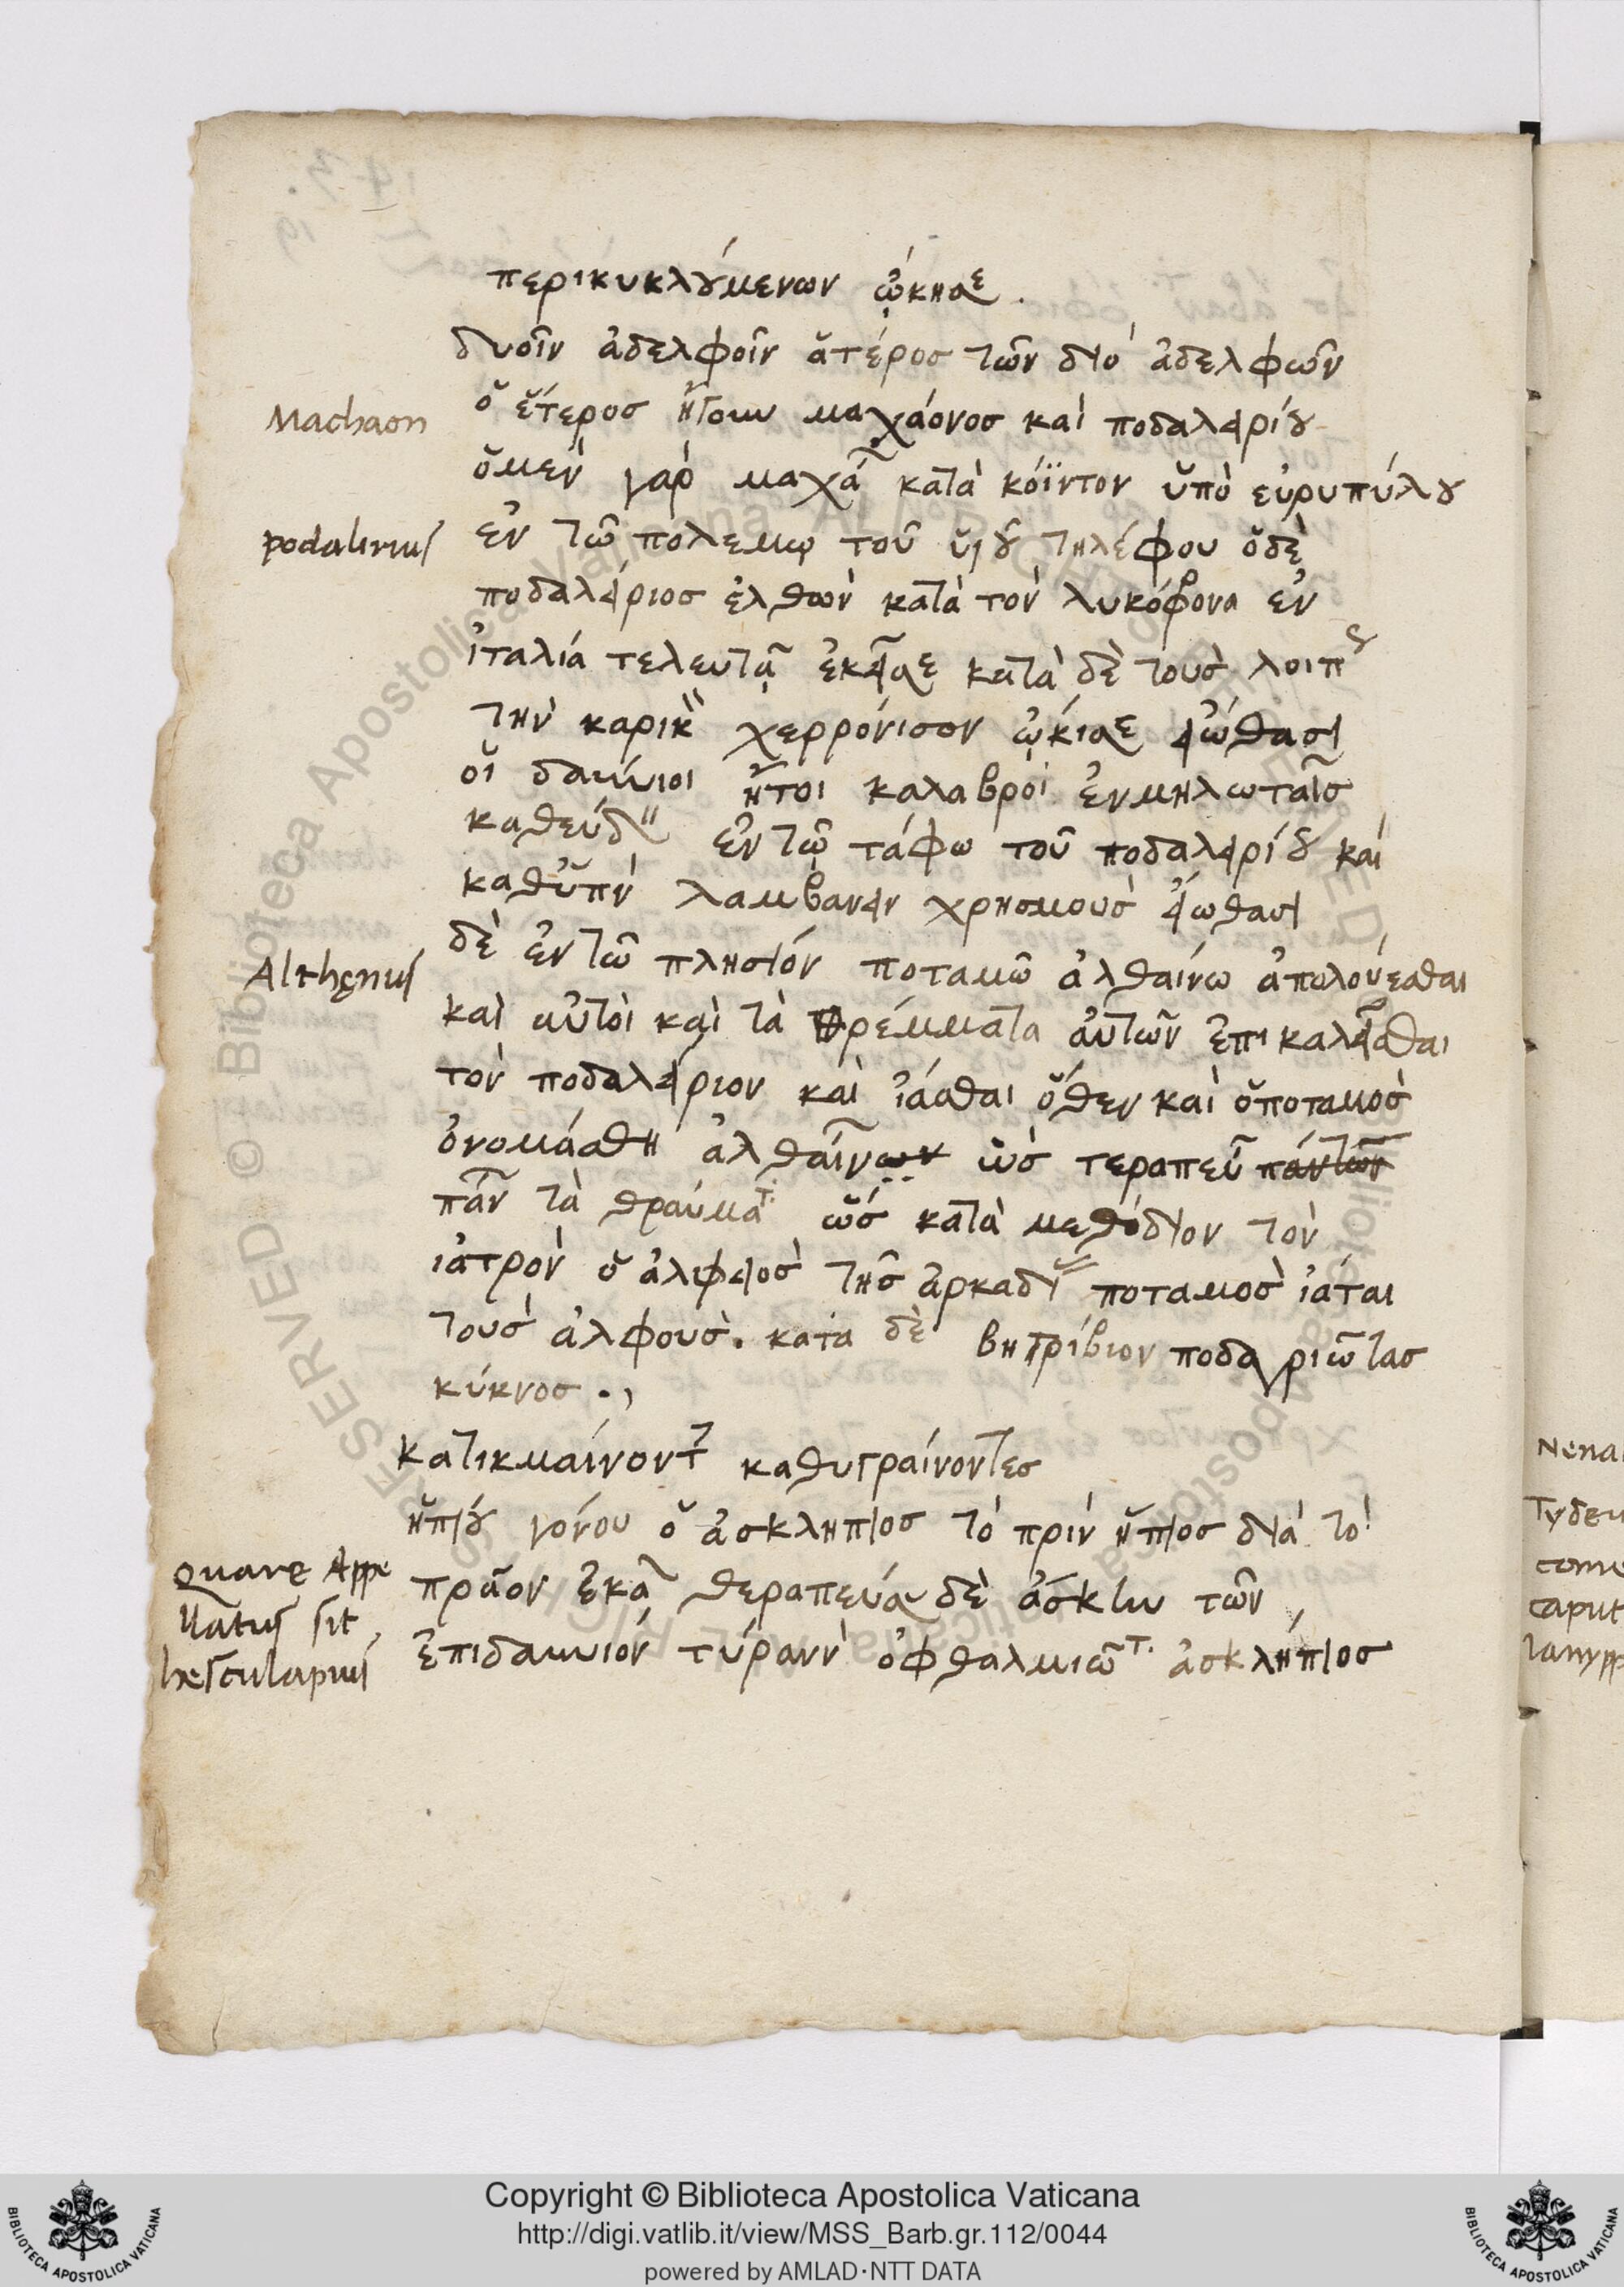 περικυκλουμενων ᾤκησε.
δυοῖν ἀδελφοῖν ἅτέροσ τῶν δύο ἀδελφῶν
Machaon ὁ ἕτεροσ ἤγουν μαχάονοσ καὶ ποδαλειρίου
ὁμὲν γὰρ μαχά κατὰ κόϊντον ὑπὸ εὐρυπύλου
podalirius ἐν τῶ πολεμῳ τοῦ ὑιοῦ τηλέφου ὁδὲ
ποδαλείριοσ ἐλθὼν κατὰ τὸν λυκόφρονα ἐν
ἰταλία τελευτᾷ ἐκεῖσε κατὰ δὲ τοὺσ λοιπ
τὴν καρικ χερρόνισον ᾤκισε εἰώθασι
οἱ δαύνιοι ἤτοι καλαβροὶ ἐνμηλωταῖσ
καθεύδ ἐν τῷ τάφω τοῦ ποδαλειρίου καὶ
καθὕπν λαμβανειν χρησμοὺσ εἰώθασι
Althęnus δὲ ἐν τῶ πλησίον ποταμῶ ἀλθαίνω ἀπολούεσθαι
καὶ αὐτοὶ καὶ τὰ θρέμματα αὐτῶν ἐπικαλεῖσθαι
τὸν ποδαλείριον καὶ ἰάσθαι ὅθεν καὶ ὁποταμὸσ
ὀνομάσθη ἀλθαῖνων ὡσ τεραπεῦ πάντων
πᾶν τὰ θραύματ ὥσ κατὰ μεθόδιον τὸν
ἰατρὸν ὁ ἀλφειὸσ τῆσ ἀρκαδί ποταμὸσ ἰάται
τοὺσ ἀλφοὺσ. κατα δὲ βητρίβιον ποδαγριῶτασ
κύκνοσ .,
κατικμαίνοντ καθυγραίνοντεσ
ἠπίου γόνου ὁ ἀσκληπιοσ τὸ πρὶν ἤπιοσ διὰ τὸ
Quarę Appe πρᾶον ἐκα θεραπεύσα δὲ ἄσκλην τῶν
llatus sit ἐπιδαυνιόν τύρανν ὀφθαλμιῶτ. ἀσκλήπιοσ
hesculapius
Nena
Tydeu
come
caput
lanypp
Copyright © Biblioteca Apostolica Vaticana
http://digi.vatlib.it/view/MSS_Barb.gr.112/0044
powered by AMLAD·NTT DATA
BIBLIOTECA APOSTOLICA VATICANA
BIBLIOTECA APOSTOLICA VATICANA